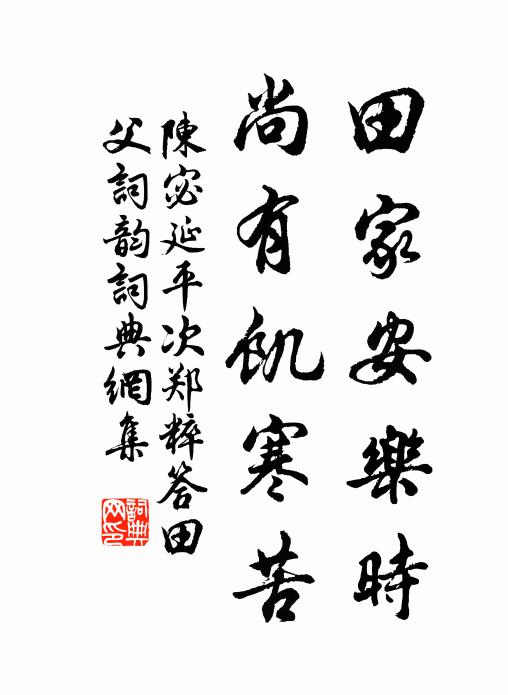 田家安樂時
尚有飢寒苦
陳宓延平次郑粹答田
父詞韵詞典網集
詞典网印